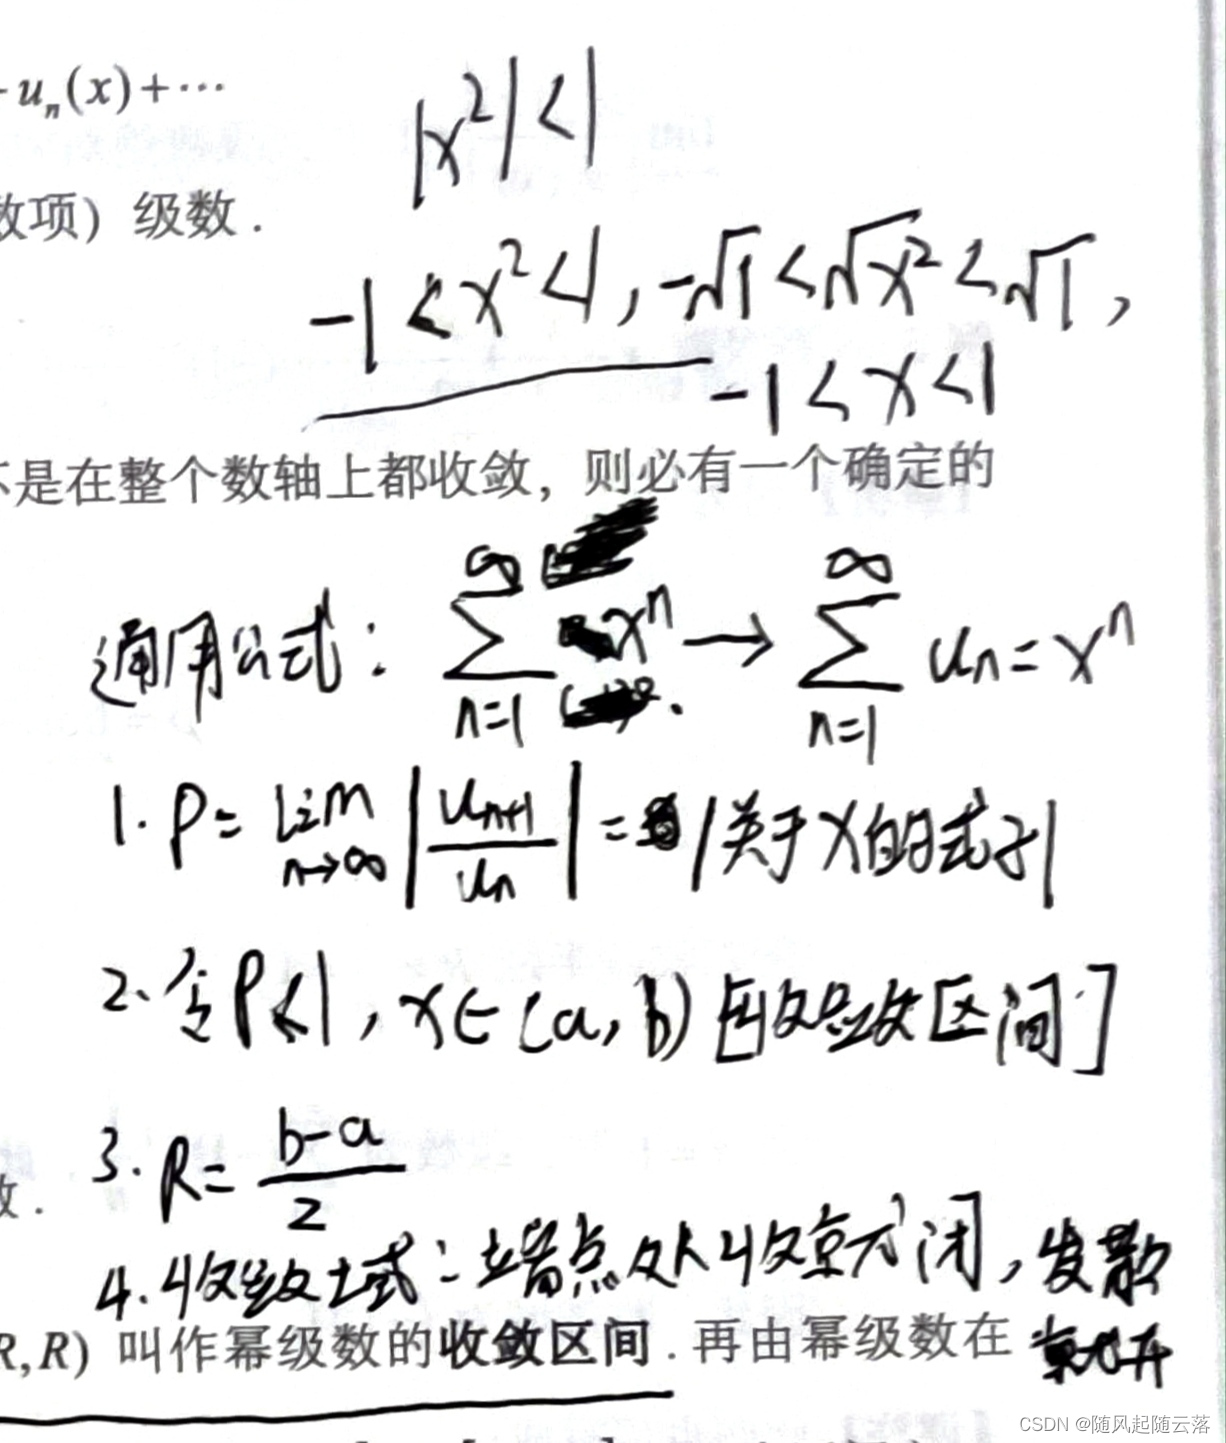 -u_n(x)+···
|x²|<1
数项）级数.
-1<x²<1, -√1<√x²<√1,
-1<x<1
不是在整个数轴上都收敛，则必有一个确定的
通用公式: ∑_{n=1}^{∞} x^n → ∑_{n=1}^{∞} u_n=x^n
1. ρ= lim_{n→∞} |u_{n+1}/u_n| = |关于x的式子|
2. 令ρ<1, x∈(a,b) [收敛区间]
3. R= (b-a)/2
4. 收敛域: 端点处收就闭, 发散
就开
R,R) 叫作幂级数的收敛区间. 再由幂级数在
CSDN @随风起随云落